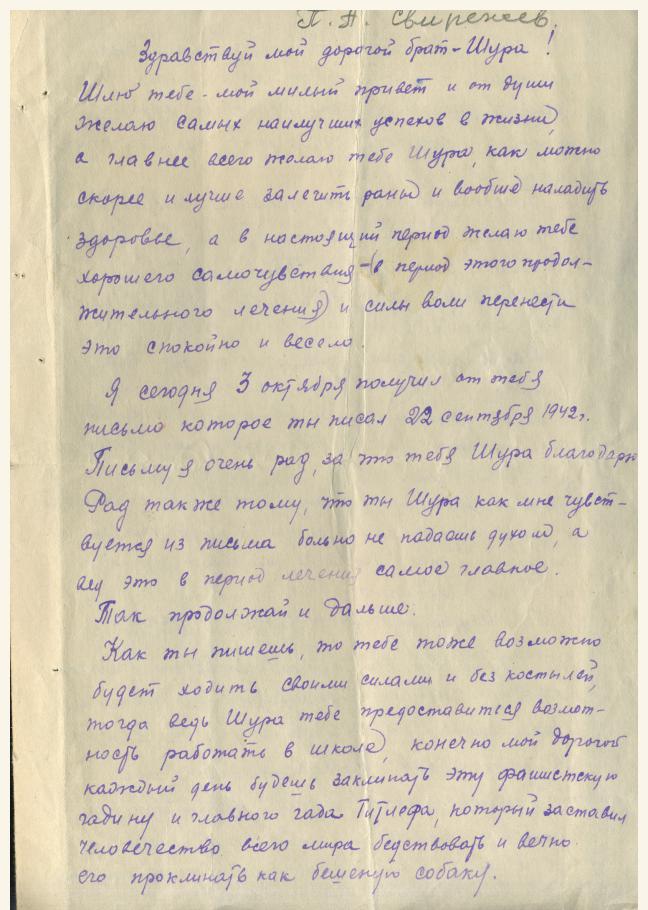 П. А. Свиренеев.
Здравствуй мой дорогой брат-Шура!
Шлю тебе - мой милый привет и от души
желаю самых наилучших успехов в жизни,
а главнее всего желаю тебе Шура, как можно
скорее и лучше залечить раны и вообще наладить
здоровье, а в настоящий период желаю тебе
хорошего самочувствия - (в период этого продол-
жительного лечения) и силы воли перенести
это спокойно и весело.
Я сегодня 3 октября получил от тебя
письмо которое ты писал 22 сентября 1942г.
Письму я очень рад, за это тебя Шура благодарю
Рад также тому, что ты Шура как мне чувст-
вуется из письма больно не падаешь духом, а
вед это в период лечения самое главное.
Так продолжай и дальше.
Как ты пишешь, то тебе тоже возможно
будет ходить своими силами и без костылей,
тогда ведь Шура тебе предоставится возмож-
ность работать в школе, конечно мой дорогой
каждый день будешь заклинать эту фашистскую
гадину и главного гада Гитлера, который заставил
человечество всего мира бедствовать и вечно
его проклинать как бешеную собаку.